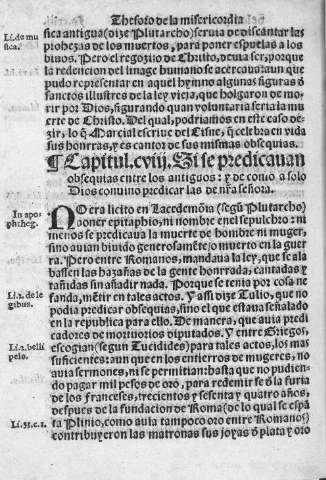 Thesoro de la misericordia
Li. de mu
sica.
sica antigua (dize Plutarcho) seruia de discantar las
prohezas de los muertos, para poner espuelas a los
biuos. Pero el regozijo de Christo, deuia ser, porque
la redencion del linage humano se acercaua: aun que
pudo representar en aquel hymno algunas figuras o
sanctos illustres de la ley vieja, que holgaron de mo
rir por Dios, figurando quan voluntaria seria la muer
te de Christo. Del qual, podriamos en este caso de-
zir, lo q̃ Marcial escriue del Cisne, q̃ celebra en vida
sus honrras, y es cantor de sus mismas obsequias.
¶ Capitul. cviij. Si se predicauan
obsequias entre los antiguos: y de como a solo
Dios conuino predicar las de n̄ra señora.
In apo
phtheg.
NO era licito en Lacedemonia (segũ Plutarcho)
poner epitaphio, ni nombre en el sepulchro: ni
menos se predicaua la muerte de hombre ni muger,
sino auian biuido generosamẽte, o muerto en la guer
ra. Pero entre Romanos, mandaua la ley, que se ala
bassen las hazañas de la gente honrrada, cantadas y
tañidas sin añadir nada. Porque se tenia por cosa ne
Li. 2. de le
gibus.
fanda, mẽtir en tales actos. Y assi dize Tulio, que no
podia predicar obsequias, sino el que estaua señalado
en la republica para ello. De manera, que auia predi
cadores de mortuorios diputados. Y entre Griegos,
Li. 2. belli
pelo.
escogian (segun Tucidides) para tales actos, los mas
suficientes: aun que en los entierros de mugeres, no
auia sermones, ni se permitian: hasta que no pudien-
do pagar mil pesos de oro, para redemir se d̃ la furia
de los franceses, trecientos y sesenta y quatro años,
despues de la fundacion de Roma (de lo qual se espã
Li. 33. c. 1.
ta Plinio, como auia tampoco oro entre Romanos)
contribuyeron las matronas sus joyas d̃ plata y oro